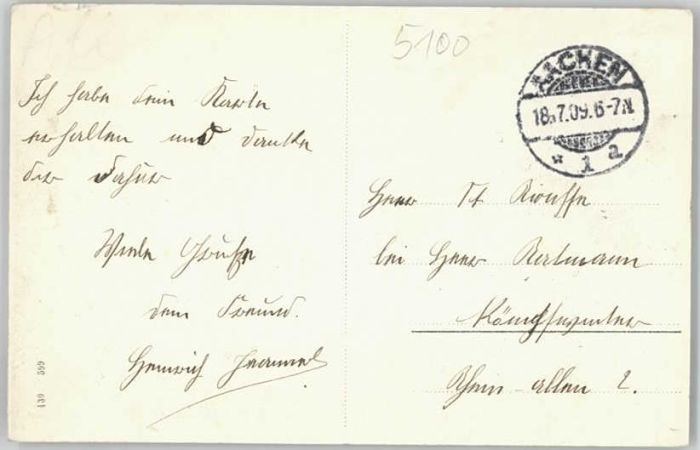 5100
AACHEN
18.7.09.6-7N
* 1 a
Ich habe dein Karte
erhalten und danke
dir dafür
Viele Grüße
dein Freund.
Heinrich
Herr
bei Herr
Königswinter
Rhein-allee 2.
139 559